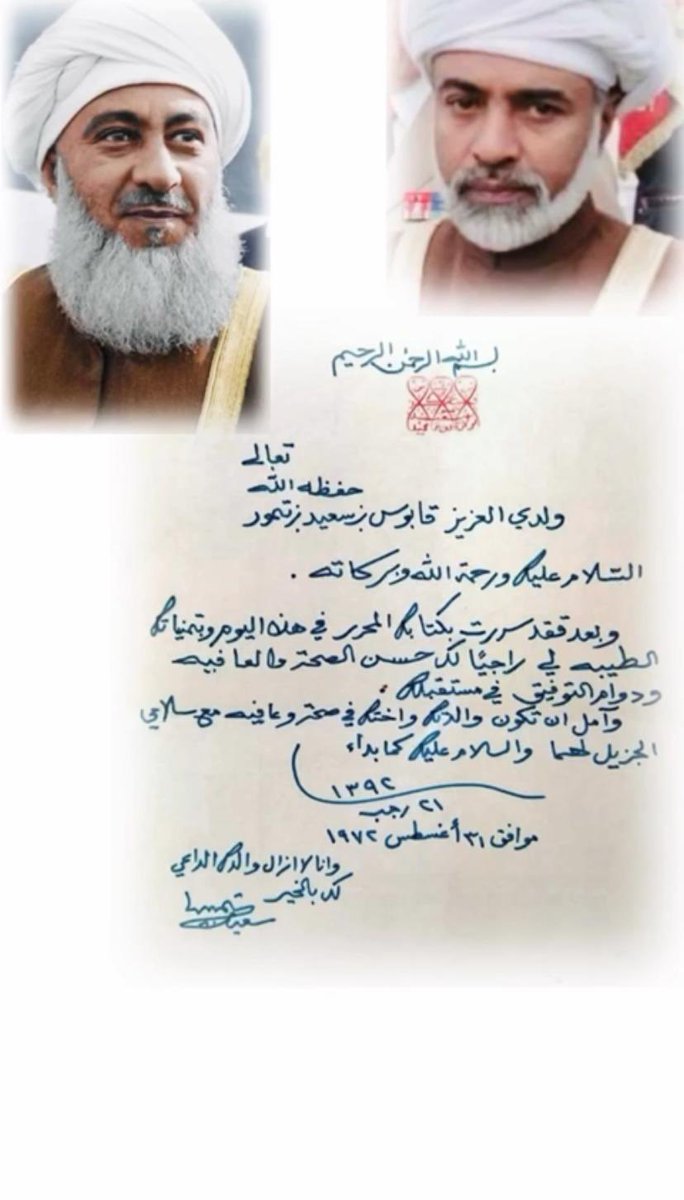 بسم الله الرحمن الرحيم
تعالى
حفظه الله
ولدي العزيز قابوس بن سعيد بن تيمور
السلام عليك ورحمة الله وبركاته .
وبعد فقد سررت بكتابك المحرر في هذا اليوم وبتمنياتك
الطيبه لي راجيًا لك حسن الصحة والعافيه
ودوام التوفيق في مستقبلك .
وآمل ان تكون والدتك واختك في صحة وعافيه مع سلامي
الجزيل لهما والسلام عليك كما بداء
١٣٩٢
٢١ رجب
موافق ٣١ أغسطس ١٩٧٢
وانا لا ازال والدك الداعي
لك بالخير
سعيد بن تيمور